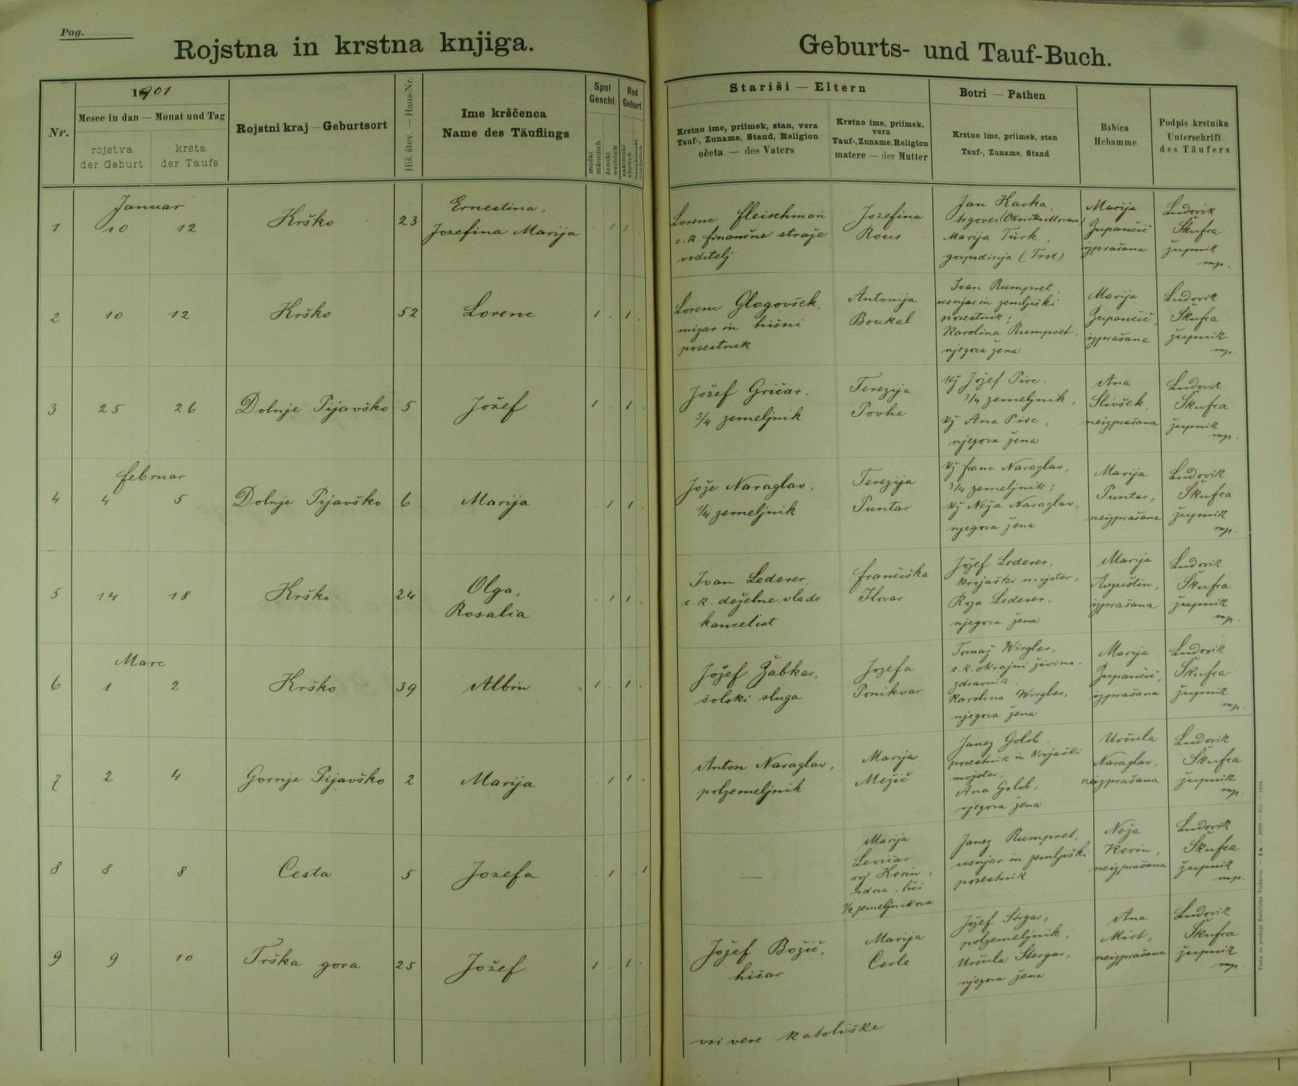 Pag.
Rojstna in krstna knjiga.
Geburts- und Tauf-Buch.
Nr.
1901
Mesec in dan — Monat und Tag
rojstva
der Geburt
krsta
der Taufe
Rojstni kraj — Geburtsort
Hiš. štev. — Haus-Nr.
Ime krščenca
Name des Täuflings
Spol
Geschl.
moški
männlich
ženski
weiblich
Rod
Geburt
zakonski
ehelich
Stariši — Eltern
Krstno ime, priimek, stan, vera
Tauf-, Zuname, Stand, Religion
očeta — des Vaters
Krstno ime, priimek,
vera
Tauf-, Zuname, Religion
matere — der Mutter
Botri — Pathen
Krstno ime, priimek, stan
Tauf-, Zuname, Stand
Babica
Hebamme
Podpis krstnika
Unterschrift
des Täufers
Januar
1 10 12 Krško 23
Ernestina,
Josefina Marija
Lorenc Fleischman
c. k. finančne straže
voditelj
Jozefina
Rous
Jan Havka
trgovec
Marija Türk,
gospodinja (Trst)
Marija
Zupančič
izprašana
Ludovik
Škufca
župnik
mp.
2 10 12 Krško 52 Lorenc
Lorenc Glogovšek
mizar in hišni
posestnik
Antonija
Boukal
Ivan Rumpret,
usnjar in zemljiški
posestnik;
Karolina Rumpret,
njegova žena
Marija
Zupančič,
izprašana
Ludovik
Škufca
župnik
mp.
3 25 26 Dolnje Pijavško 5 Jožef
Jožef Gričar,
3/4 zemeljnik
Terezija
Povhe
Jožef Pirc,
3/4 zemeljnik,
Ana Pirc,
njegova žena
Ana
Slivšek,
neizprašana
Ludovik
Škufca
župnik
mp.
februar
4 4 5 Dolnje Pijavško 6 Marija
Jože Naraglav,
1/4 zemeljnik
Terezija
Puntar
franc Naraglav,
3/4 zemeljnik;
Neža Naraglav,
njegova žena
Marija
Puntar,
neizprašana
Ludovik
Škufca
župnik
mp.
5 14 18 Krško 24
Olga,
Rosalia
Ivan Lederer,
c. k. deželne vlade
kancelist
frančiška
Hovar
Jožef Lederer,
krojaški mojster,
Roza Lederer,
njegova žena
Marija
Avguštin,
izprašana
Ludovik
Škufca
župnik
mp.
Marc
6 1 2 Krško 39 Albin
Jožef Žabkar,
šolski sluga
Jozefa
Ponikvar
Tomaž Wirgler,
c. k. okrajni živino-
zdravnik
Karolina Wirgler,
njegova žena
Marija
Zupančič,
izprašana
Ludovik
Škufca
župnik
mp.
7 2 4 Gornje Pijavško 2 Marija
Anton Naraglav,
polzemeljnik
Marija
Mežič
Janez Golob
posestnik in krojaški
mojster;
Ana Golob,
njegova žena
Uršula
Naraglav,
neizprašana
Ludovik
Škufca
župnik
mp.
8 8 8 Cesta 5 Jozefa
—
Marija
Levičar
roj. Kerin,
vdova, hči
1/2 zemeljnikova
Janez Rumpret,
usnjar in zemljiški
posestnik
Neža
Kerin,
neizprašana
Ludovik
Škufca
župnik
mp.
9 9 10 Trška gora 25 Jožef
Jožef Božič,
hišar
Marija
Cerle
Jožef Stergar,
polzemeljnik;
Uršula Stergar,
njegova žena
Ana
Mirt,
neizprašana
Ludovik
Škufca
župnik
mp.
vsi vere katoliške